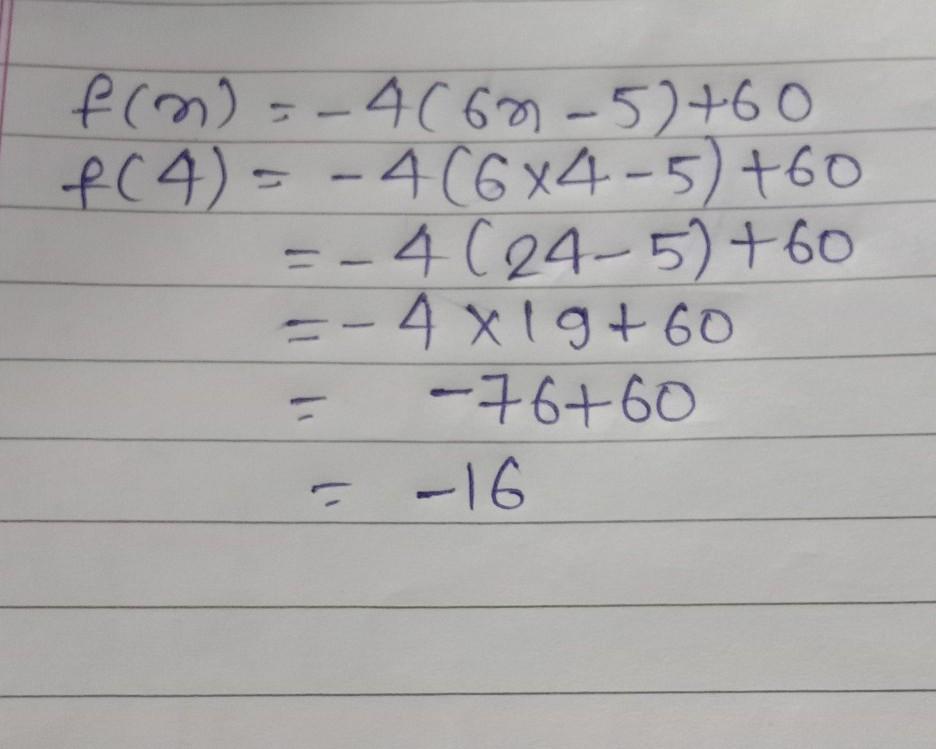 f(x) = -4(6x-5)+60
f(4) = -4(6×4-5)+60
= -4(24-5)+60
= -4×19+60
= -76+60
= -16